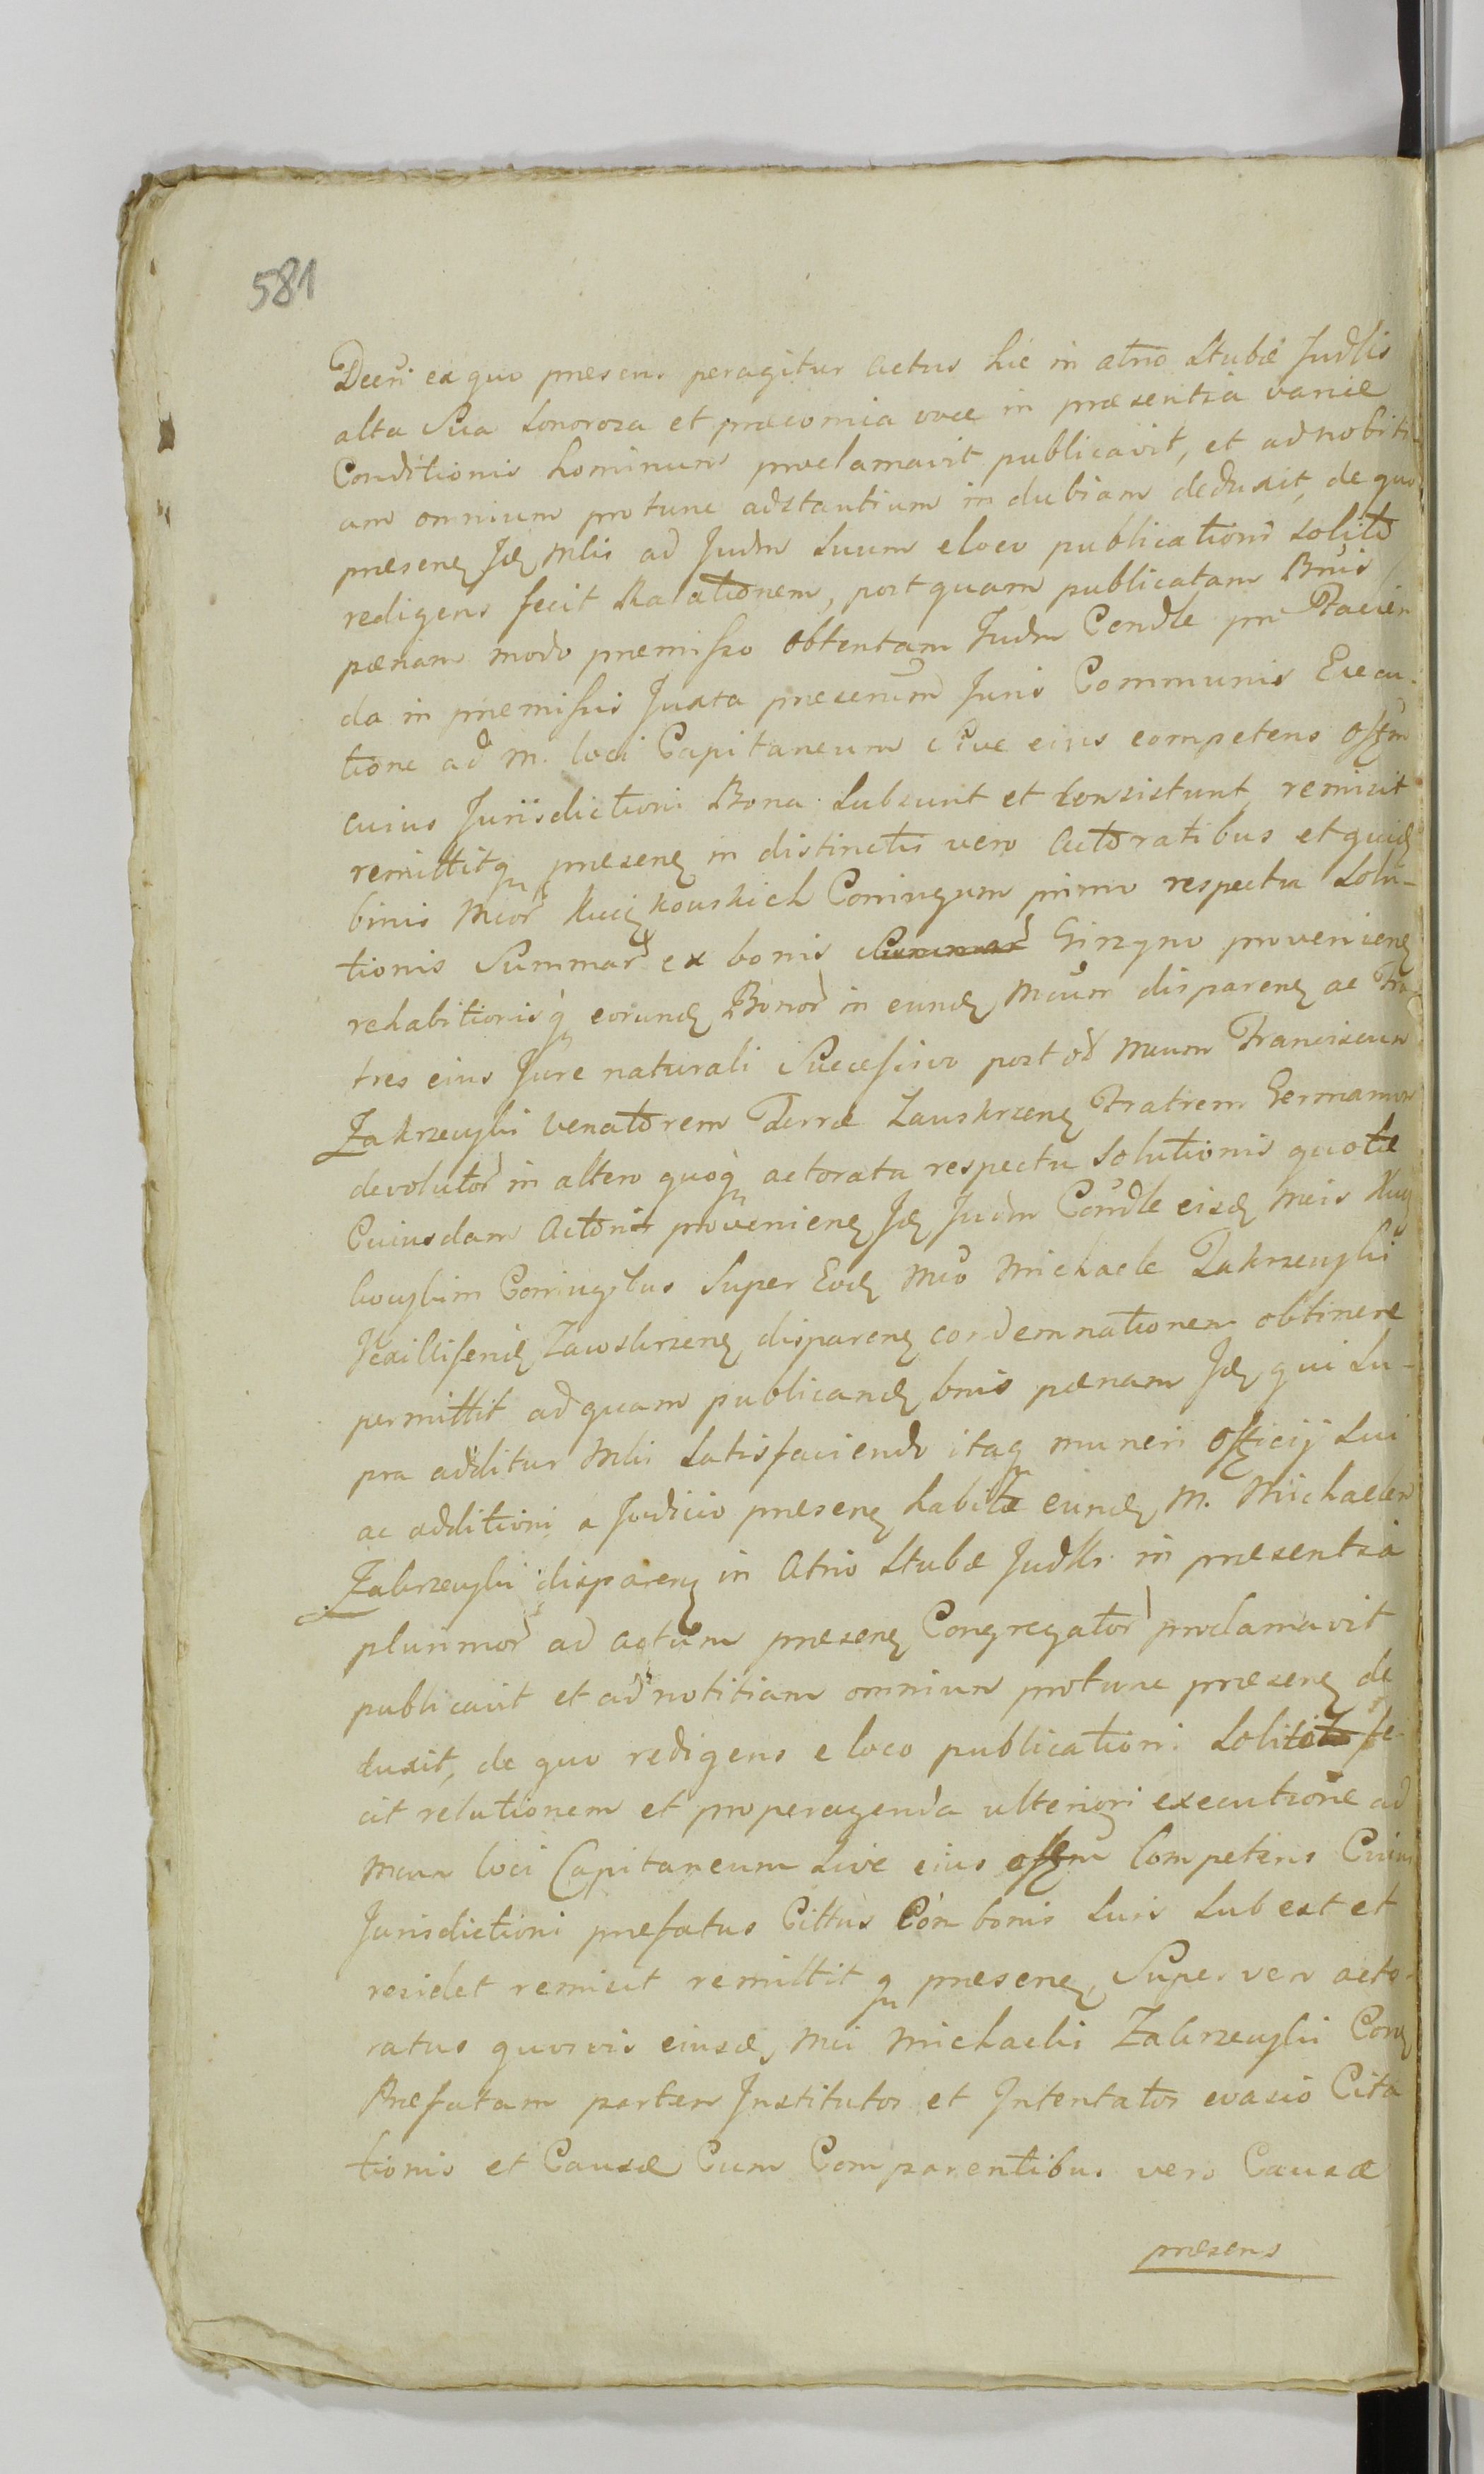 581
Decri ex quo præsens peragitur actus hic in atrio Stubæ Judlis
alta Sua Sonoroza et præconia voce in præsentia variæ
Conditionis hominum proclamavit publicavit, et ad notiti-
am omnium protunc adstantium in dubiam deduxit, de quo
præsene Jdē mlis ad Judm Suum e loco publicationi Solito
redigens fecit Ralationem, post quam publicatam Bnis
pænam modo præmisso obtentam Judm Condle pro facien
da in præmissis Juxta præscrium Juris Communis Execu-
tione ad M. loci Capitaneum sive eius competens Offm
cuius Jurisdictioni Bona Subsunt et consistunt remisit
remittitq præsene in distinctis vero actoratibus et quidē
binis Mcor Kuczkowskich Coniugum primo respectu Solu-
tionis Summar ex bonis Summar Girzyno proveniene
rehabitionisq eorundē Bonor in eundē Mcum disparenē ac Fra
tres eius Jure naturali Succesivo post od Mcum Franciscum
Zakrzewski Venatorem Terræ Zauskrzenē Fratrem Germanum
devolutor in altero quoq actoratu respectu Solutionis quotæ
Cuiusdam Actoris provenienē Jdē Judm Condle eisdē Mcis Kucz
kowskim Coniugibus Super Eodē Mco Michaele Zakrzewski
Vexilliferidē Zawskrzenē disparenē condemnationem obtinere
permittit ad quam publicandē bnis pænam Jdē qui Su-
pra additur Mlis Satisfaciendo itaq muneri Officij Sui
ac additioni a Judicio præsenē habitæ eundē M. Michaelem
Zakrzewski disparenē in Atrio Stubæ Judlis in præsentia
plurimor ad actum præsenē Congregator proclamavit
publicavit et ad notitiam omnium protunc præsenē de
duxit, de quo redigens e loco publicationi Solito fe-
cit relationem et pro peragenda ulteriori executione ad
Mcum loci Capitaneum Sive eius offm Competens Cuius
Jurisdictioni præfatus Cittus Con bonis Suis Subest et
residet remisit remittit q præsenē, Super vero acto-
ratus quosvis eiusdē Mci Michaelis Zakrzewski Conē
Præfatam partem Institutos et Intentatos evasio Cita
tionis et Causæ Cum Comparentibus vero Causæ
præsens